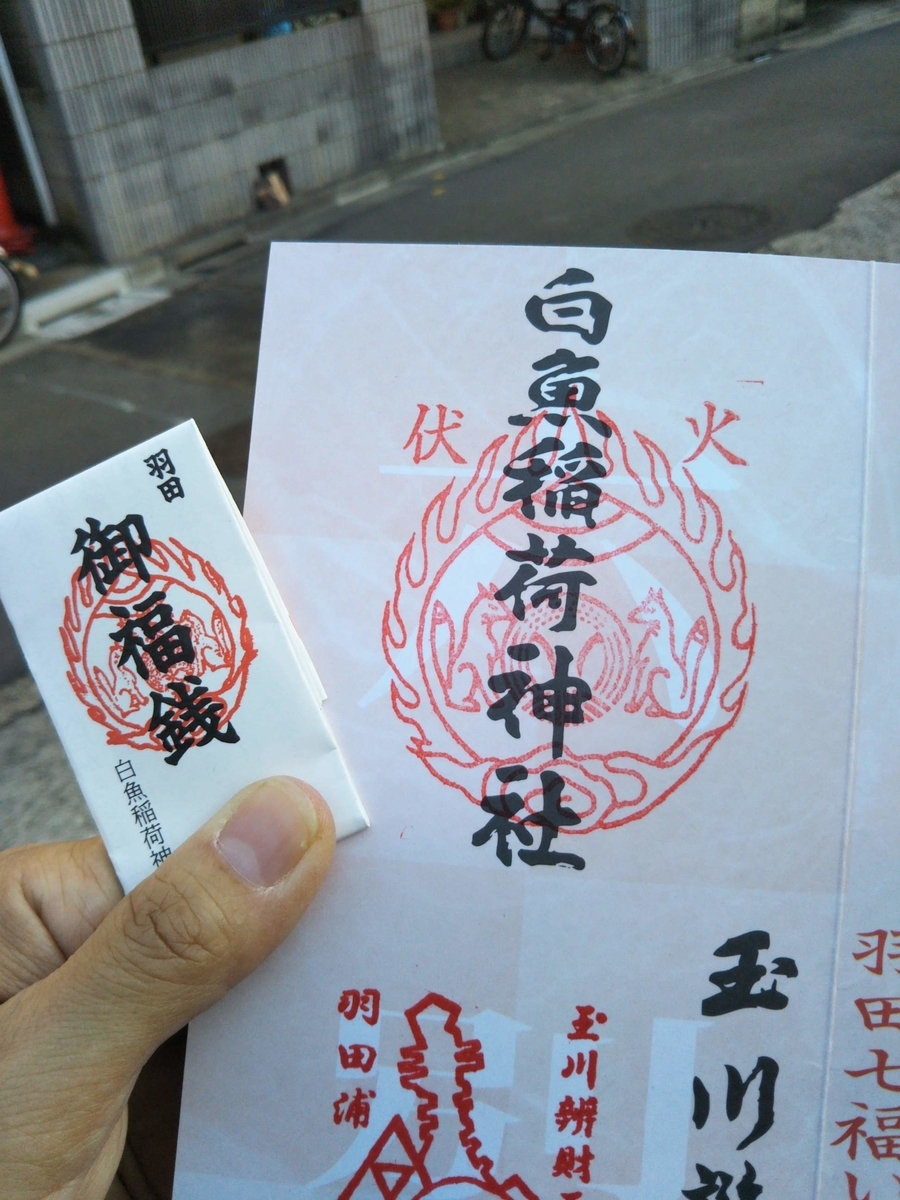 白魚稲荷神社
火
伏
羽田
御福銭
白魚稲荷神
羽田七福い
玉川
玉川辨財
羽田浦